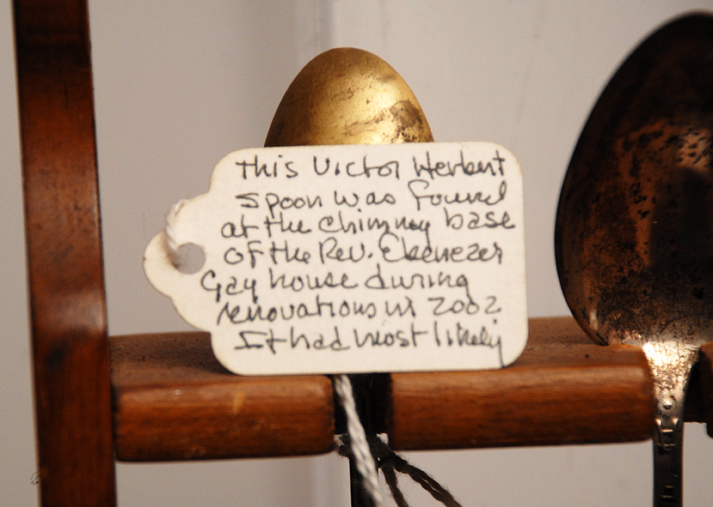 This Victor Herbert
spoon was found
at the chimney base
of the Rev. Ebenezer
Gay house during
renovations in 2002
It had most likely